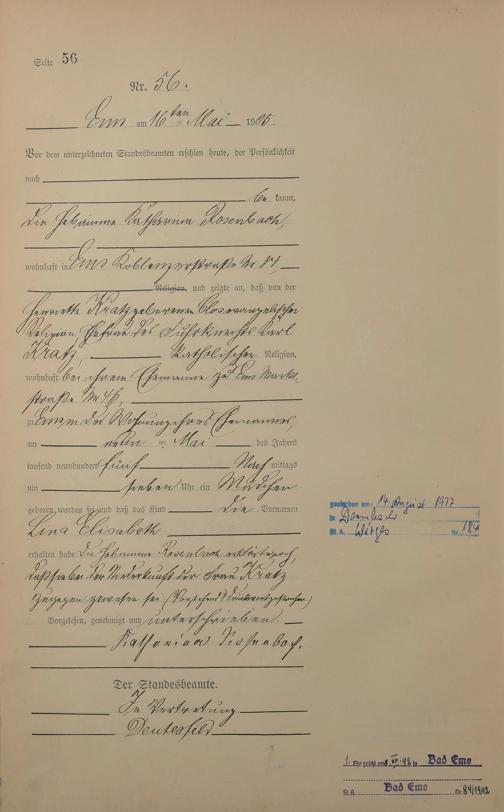 Seite 56
Nr. 56.
Ems am 16ten Mai 1905.
Vor dem unterzeichneten Standesbeamten erschien heute, der Persönlichkeit
nach
be kannt,
die Hebamme Katharina Rosenbach,
wohnhaft in Ems Koblenzerstraße Nr 81,
Religion, und zeigte an, daß von der
Henriette Kratz geborenen Clos evangelischer
Religion Ehefrau des Fuhrknechts Karl
Kratz, katholischer Religion,
wohnhaft bei ihrem Ehemanne zu Ems Markt-
straße Nr 46,
zu Ems in der Wohnung ihres Ehemannes,
am neun ten Mai des Jahres
tausend neunhundert fünf Nach mittags
um sieben Uhr ein Mädchen
geboren worden sei und daß das Kind die Vornamen
Lina Elisabeth
erhalten habe. Die Hebamme Rosenbach erklärte noch,
daß sie bei der Niederkunft der Frau Kratz
zugegen gewesen sei. (Vorstehend Druckwort gestrichen.)
Vorgelesen, genehmigt und unterschrieben.
Katharina Rosenbach.
Der Standesbeamte.
In Vertretung
gestorben am: 14. August 1977
in Dernbach
St. A. Wirges Nr.
1. Ehe geschl. am in Bad Ems
St. A. Bad Ems Nr. 84/1942